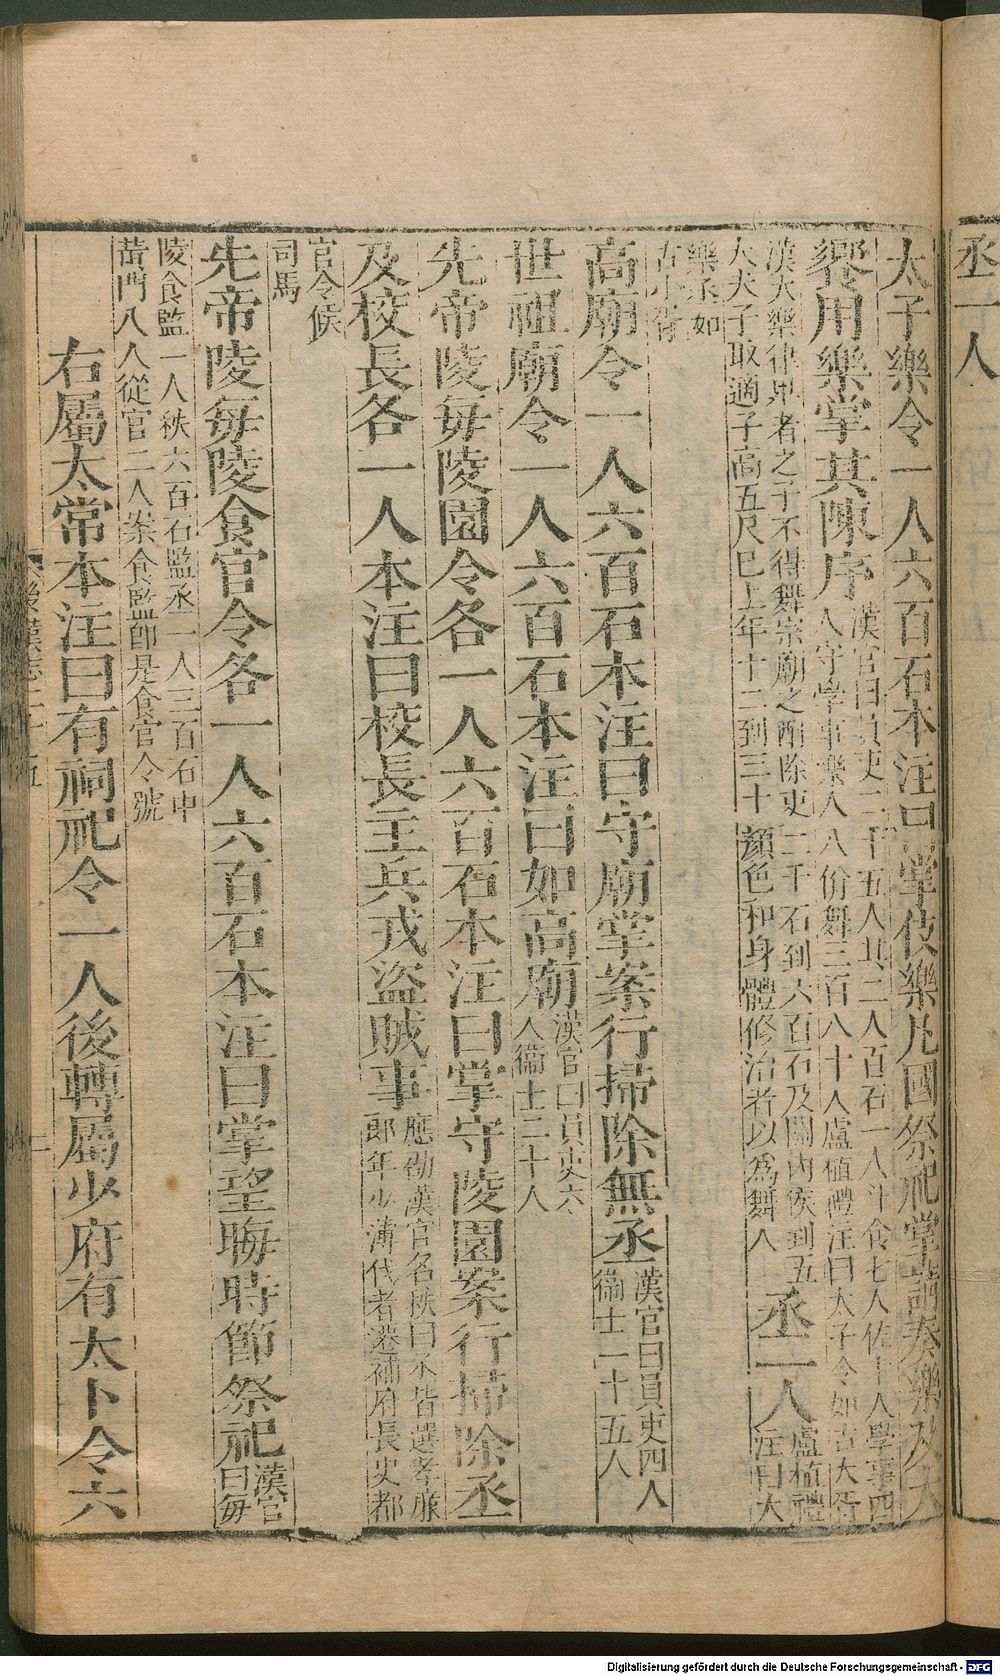 丞一人
太子樂令一人六百石本注曰掌伎樂凡國祭祀掌請奏樂及大
饗用樂掌其陳序漢官曰員吏二十五人其二人百石二人斗食七人佐十人學事四
人守學事樂人八佾舞三百八十人盧植禮注曰大子令如古大胥
漢大樂律卑者之子不得舞宗廟之酎除吏二千石到六百石及關內侯到五
大夫子取適子高五尺已上年十二到三十顏色和身體修治者以爲舞人丞一人盧植禮
注曰大
樂丞如
古小胥
高廟令一人六百石本注曰守廟掌案行掃除無丞漢官曰員吏四人
衞士一十五人
世祖廟令一人六百石本注曰如高廟漢官曰員吏六
人衞士二十人
先帝陵每陵園令各一人六百石本注曰掌守陵園案行掃除丞
及校長各一人本注曰校長主兵戎盜賊事應劭漢官名秩曰丞皆選孝廉
郎年少薄伐者遷補府長史都
官令候
司馬
先帝陵每陵食官令各一人六百石本注曰掌望晦時節祭祀漢官
曰每
陵食監一人秩六百石監丞一人三百石中
黄門八人從官二人案食監卽是食官令號
右屬太常本注曰有祠祀令一人後轉屬少府有太卜令六
後漢志二十五
Digitalisierung gefördert durch die Deutsche Forschungsgemeinschaft - DFG